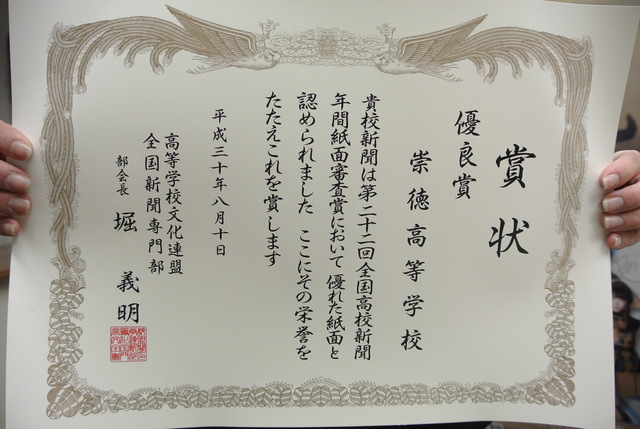 賞状
優良賞
崇徳高等学校
貴校新聞は第二十二回全国高校新聞
年間紙面審査賞において優れた紙面と
認められました ここにその栄誉を
たたえこれを賞します
平成三十年八月十日
高等学校文化連盟
全国新聞専門部
部会長 堀 義明